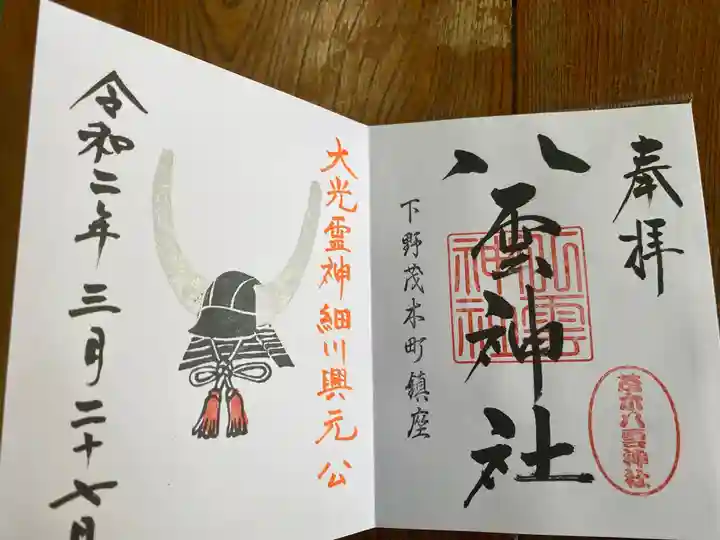 奉拝
八雲神社
八雲神社
下野茂木町鎮座
茂木八雲神社
大光霊神細川興元公
令和二年三月二十七日